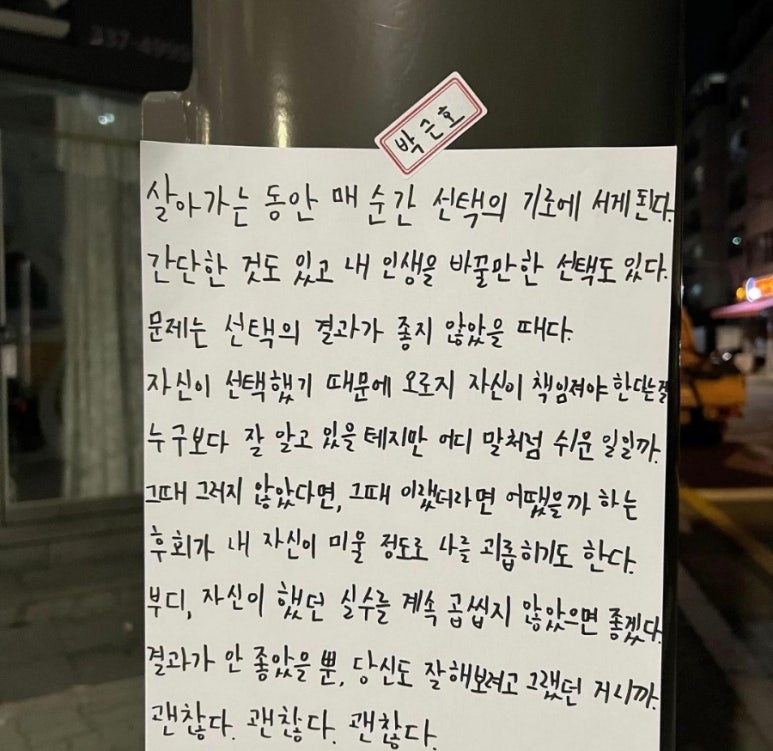 337-4999
박근호
살아가는 동안 매 순간 선택의 기로에 서게 된다.
간단한 것도 있고 내 인생을 바꿀만한 선택도 있다.
문제는 선택의 결과가 좋지 않았을 때다.
자신이 선택했기 때문에 오로지 자신이 책임져야 한다는걸
누구보다 잘 알고 있을 테지만 어디 말처럼 쉬운 일일까.
그때 그러지 않았다면, 그때 이랬더라면 어땠을까 하는
후회가 내 자신이 미울 정도로 나를 괴롭히기도 한다.
부디, 자신이 했던 실수를 계속 곱씹지 않았으면 좋겠다.
결과가 안 좋았을 뿐, 당신도 잘해보려고 그랬던 거니까.
괜찮다. 괜찮다. 괜찮다.